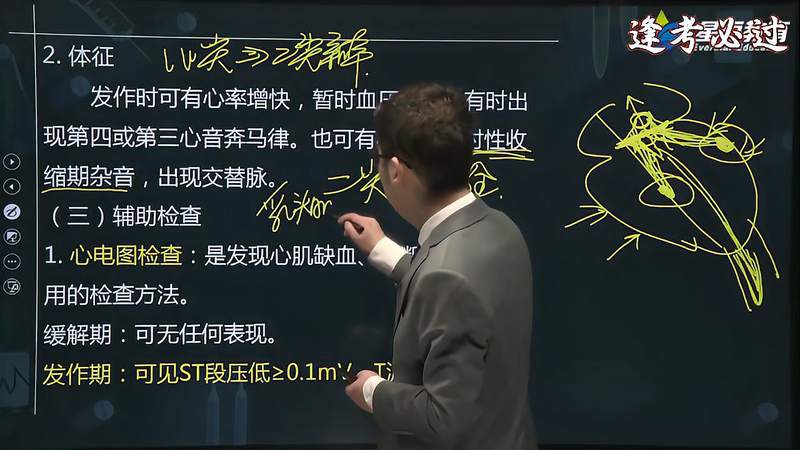 逢考必过
2. 体征
心尖⇒二尖瓣
发作时可有心率增快，暂时血压 有时出
现第四或第三心音奔马律。也可有 时性收
缩期杂音，出现交替脉。
二尖 全
乳头肌
（三）辅助检查
1. 心电图检查：是发现心肌缺血、 断
用的检查方法。
缓解期：可无任何表现。
发作期：可见ST段压低≥0.1mV、T